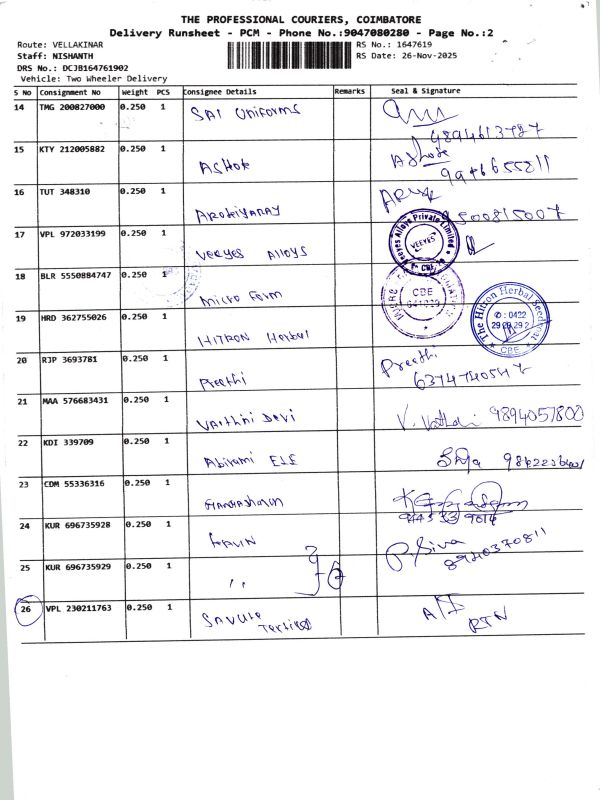 THE PROFESSIONAL COURIERS, COIMBATORE
Delivery Runsheet - PCM - Phone No.:9047080280 - Page No.:2
Route: VELLAKINAR RS No.: 1647619
Staff: NISHANTH RS Date: 26-Nov-2025
DRS No.: DCJB164761902
Vehicle: Two Wheeler Delivery
S No Consignment No Weight PCS Consignee Details Remarks Seal & Signature
14 TMG 200827000 0.250 1 SAI Uniforms
9894613787
15 KTY 212005882 0.250 1 Ashok Ashok
16 TUT 348310 0.250 1 Arokiyaray
17 VPL 972033199 0.250 1 Veeyes Alloys Veeyes Alloys Private Limited VEEYES CBE
18 BLR 5550884747 0.250 1 Micro Form CBE
19 HRD 362755026 0.250 1 HITRON Herbal The Hitron Herbal CBE
20 RJP 3693781 0.250 1 Preethi Preethi
21 MAA 576683431 0.250 1 Vaithni Devi 9894057800
22 KDI 339709 0.250 1 Abirami
23 CDM 55336316 0.250 1
24 KUR 696735928 0.250 1 Kavin P. Siva
8940370811
25 KUR 696735929 0.250 1 ,,
26 VPL 230211763 0.250 1 RTN